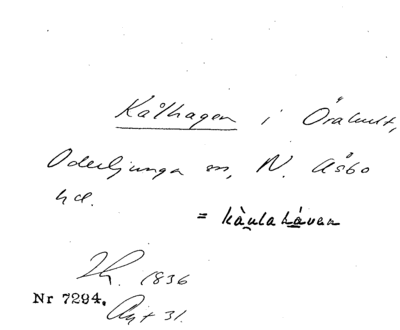 Kålhagen i Örakult,
Oderljunga sn, N. Åsbo
hd.
= kàulahávan
1836
Nr 7294.
31.